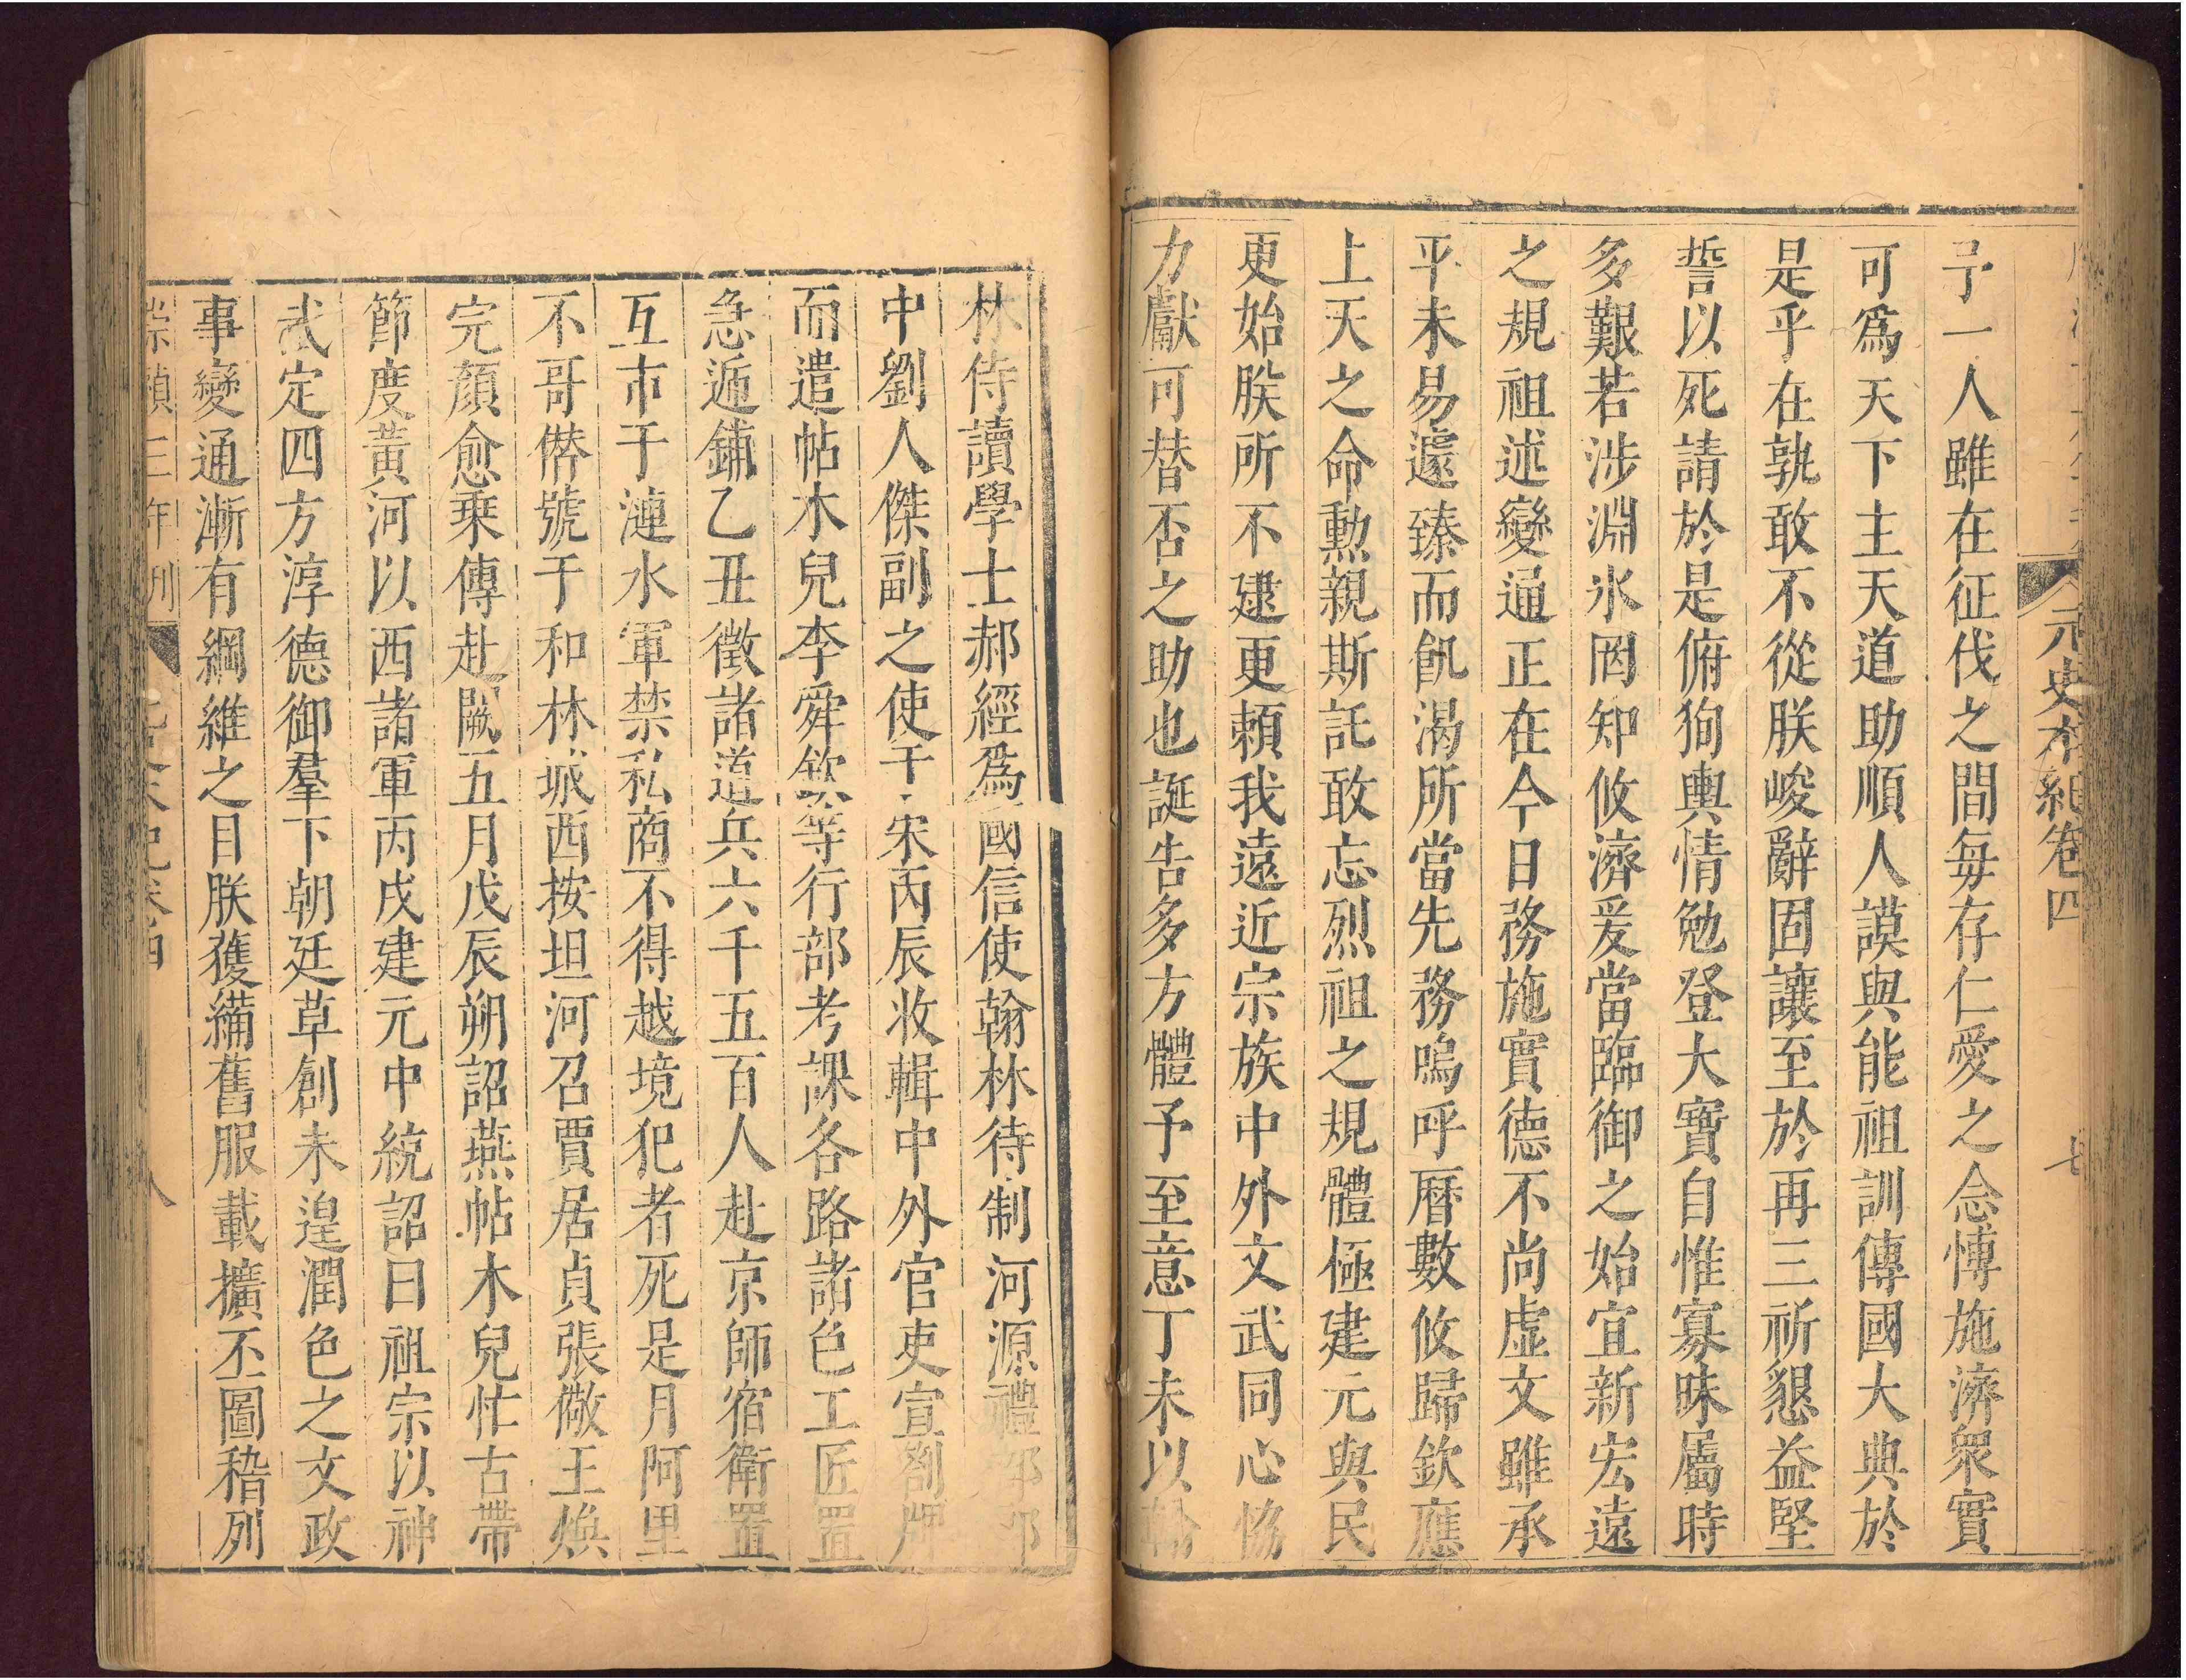 元史本紀卷四
七
予一人雖在征伐之間每存仁愛之念愽施濟衆實
可爲天下主天道助順人謨與能祖訓傳國大典於
是乎在孰敢不從朕峻辭固讓至於再三祈懇益堅
誓以死請於是俯狥輿情勉登大寶自惟寡昧屬時
多艱若涉淵氷罔知攸濟爰當臨御之始宜新宏遠
之規祖述變通正在今日務施實德不尚虚文雖承
平未易遽臻而飢渴所當先務嗚呼曆數攸歸欽應
上天之命勲親斯託敢忘烈祖之規體極建元與民
更始朕所不逮更頼我遠近宗族中外文武同心恊
力獻可替否之助也誕告多方體予至意丁未以翰
林侍讀學士郝經爲國信使翰林待制河源禮部郎
中劉人傑副之使于宋丙辰收輯中外官吏宣劄牌
而遣帖木兒李舜欽等行部考課各路諸色工匠置
急逓鋪乙丑徵諸道兵六千五百人赴京師宿衛置
互市于漣水軍禁私商不得越境犯者死是月阿里
不哥僣號于和林城西按坦河召賈居貞張儆王煥
完顔愈乗傳赴闕五月戊辰朔詔燕帖木兒忙古帶
節度黃河以西諸軍丙戌建元中統詔曰祖宗以神
武定四方淳德御羣下朝廷草創未遑潤色之文政
事變通漸有綱維之目朕獲纘舊服載擴丕圖稽列
崇禎三年刊
元史本紀卷四
八